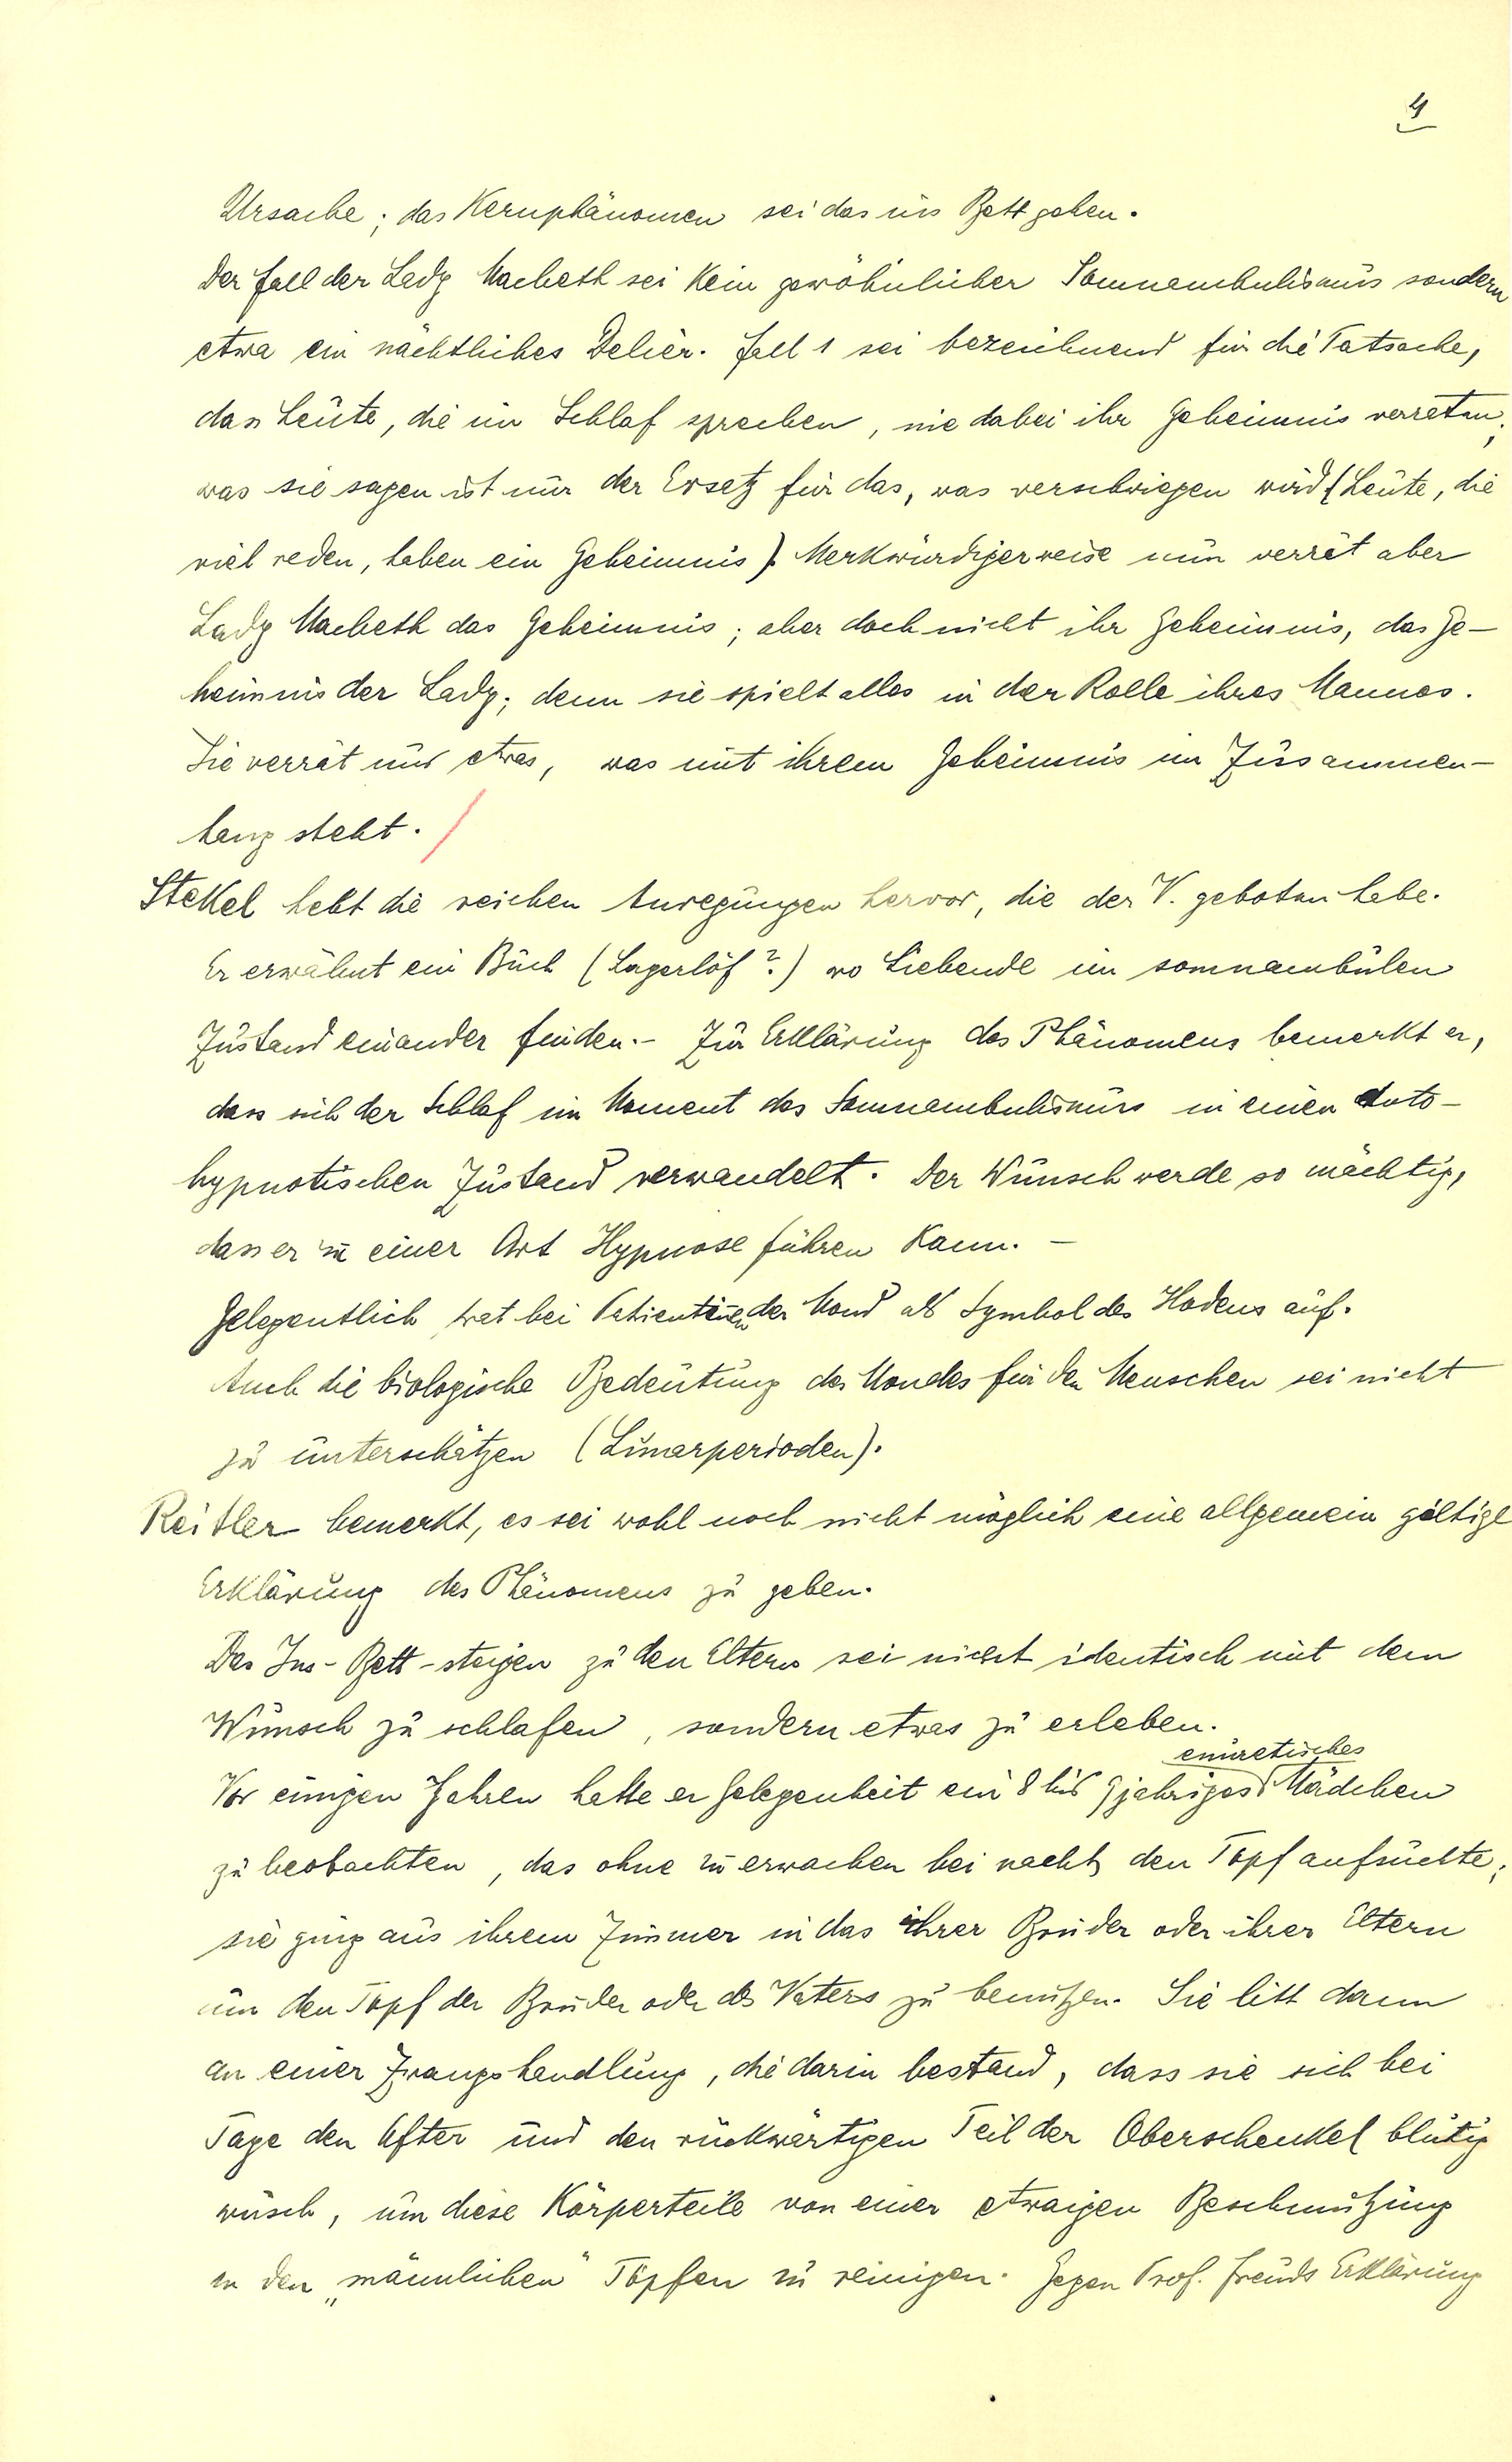 4
Ursache; das Kernphänomen sei das ins Bett gehen.
Der Fall der Lady Macbeth sei kein gewöhnlicher Somnambulismus sondern
etwa ein nächtliches Delir. Fall 1 sei bezeichnend für die Tatsache,
dass Leute, die im Schlaf sprechen, nie dabei ihr Geheimnis verraten;
was sie sagen ist nur der Ersatz für das, was verschwiegen wird (Leute, die
viel reden, haben ein Geheimnis). Merkwürdigerweise nun verrät aber
Lady Macbeth das Geheimnis; aber doch nicht ihr Geheimnis, das Ge-
heimnis der Lady; denn sie spielt alles in der Rolle ihres Mannes.
Sie verrät nur etwas, was mit ihrem Geheimnis im Zusammen-
hang steht. /
Stekel hebt die reichen Anregungen hervor, die der V. geboten habe.
Er erwähnt ein Buch (Lagerlöf?) wo Liebende im somnambulen
Zustand einander finden.- Zur Erklärung des Phänomens bemerkt er,
dass sich der Schlaf im Moment des Somnambulismus in einen Auto-
hypnotischen Zustand verwandelt. Der Wunsch werde so mächtig,
dass er zu einer Art Hypnose führen kann. —
Gelegentlich trat bei Patientinnen der Mond als Symbol des Hodens auf.
Auch die biologische Bedeutung des Mondes für den Menschen sei nicht
zu unterschätzen (Lunarperioden).
Reitler bemerkt, es sei wohl noch nicht möglich eine allgemein gültige
Erklärung des Phänomens zu geben.
Das Ins-Bett-steigen zu den Eltern sei nicht identisch mit dem
Wunsch zu schlafen, sondern etwas zu erleben.
Vor einigen Jahren hatte er Gelegenheit ein 8 bis 9jähriges enuretisches Mädchen
zu beobachten, das ohne zu erwachen bei nacht den Topf aufsuchte;
sie ging aus ihrem Zimmer in das ihrer Brüder oder ihrer Eltern
um den Topf der Brüder oder des Vaters zu benützen. Sie litt dann
an einer Zwangshandlung, die darin bestand, dass sie sich bei
Tage den After und den rückwärtigen Teil der Oberschenkel blutig
wusch, um diese Körperteile von einer etwaigen Beschmutzung
an den „männlichen" Töpfen zu reinigen. Gegen Prof. Freuds Erklärung